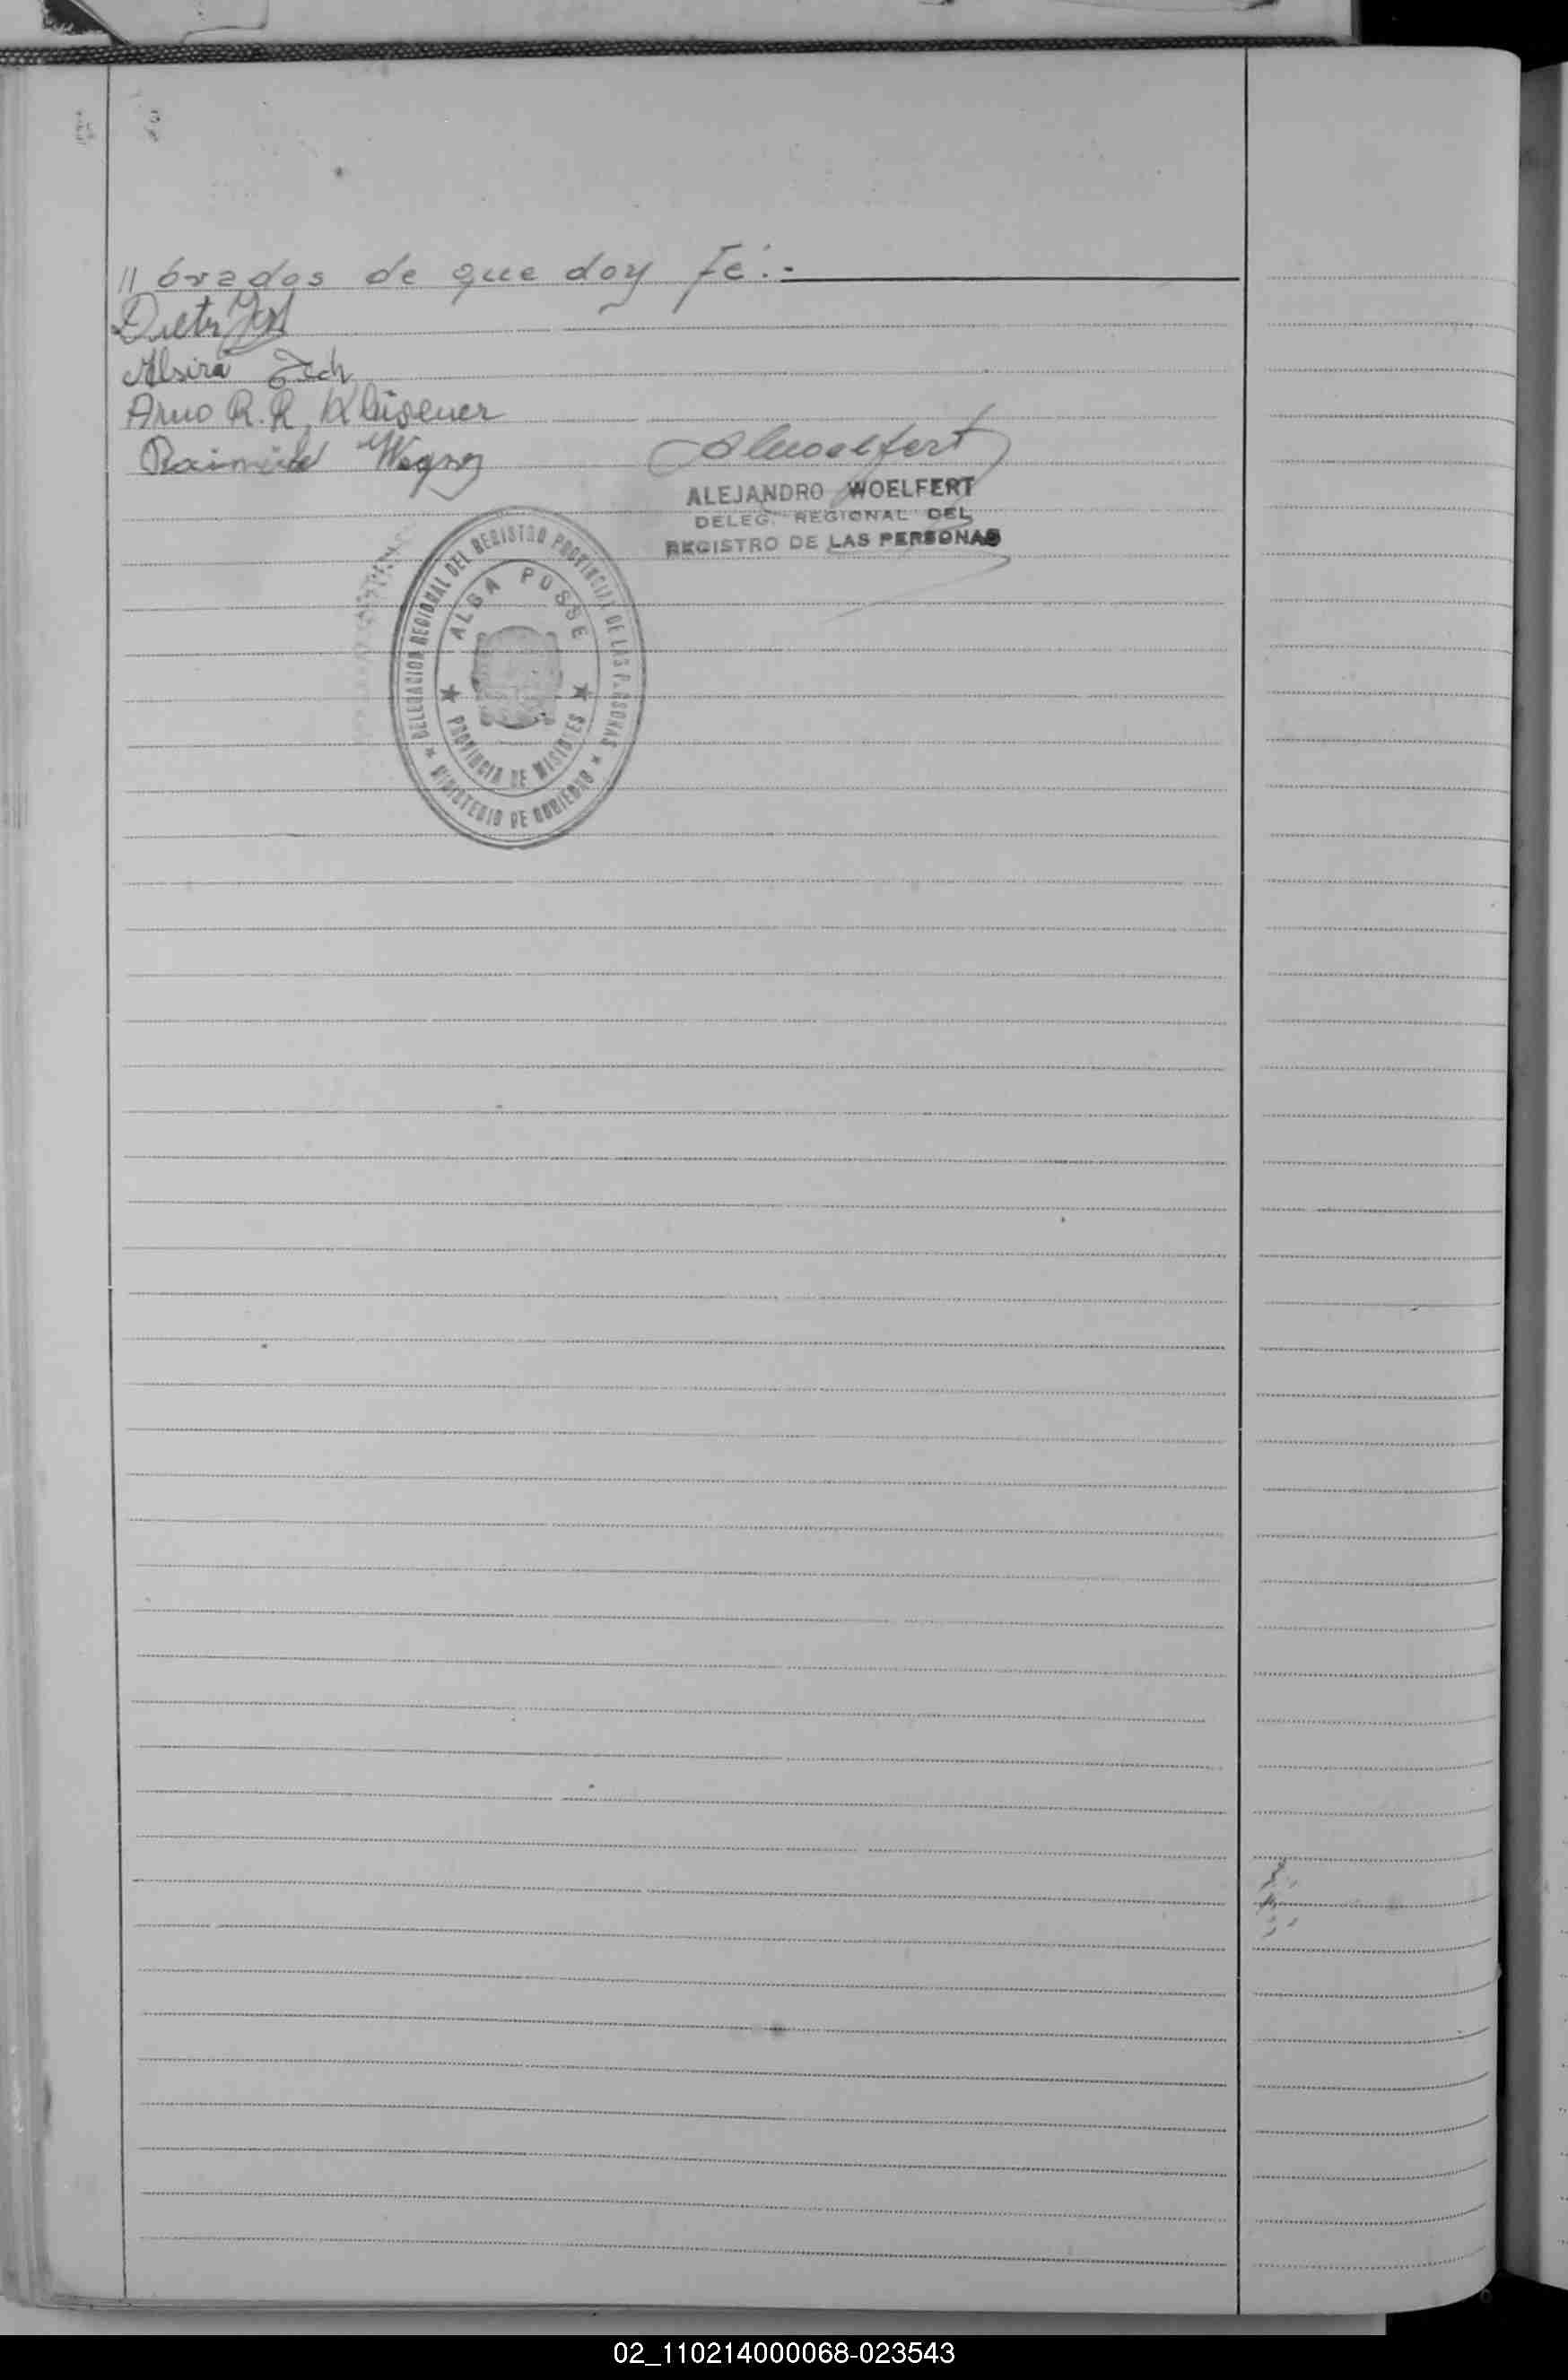 // brados de que doy Fé.-
Alsira
Arno R. R. Kleisener
Raimundo
AWoelfert
ALEJANDRO WOELFERT
DELEG. REGIONAL DEL
REGISTRO DE LAS PERSONAS
DELEGACION REGIONAL DEL REGISTRO PROVINCIAL DE LAS PERSONAS
ALBA POSSE
PROVINCIA DE MISIONES
MINISTERIO DE GOBIERNO
02_110214000068-023543